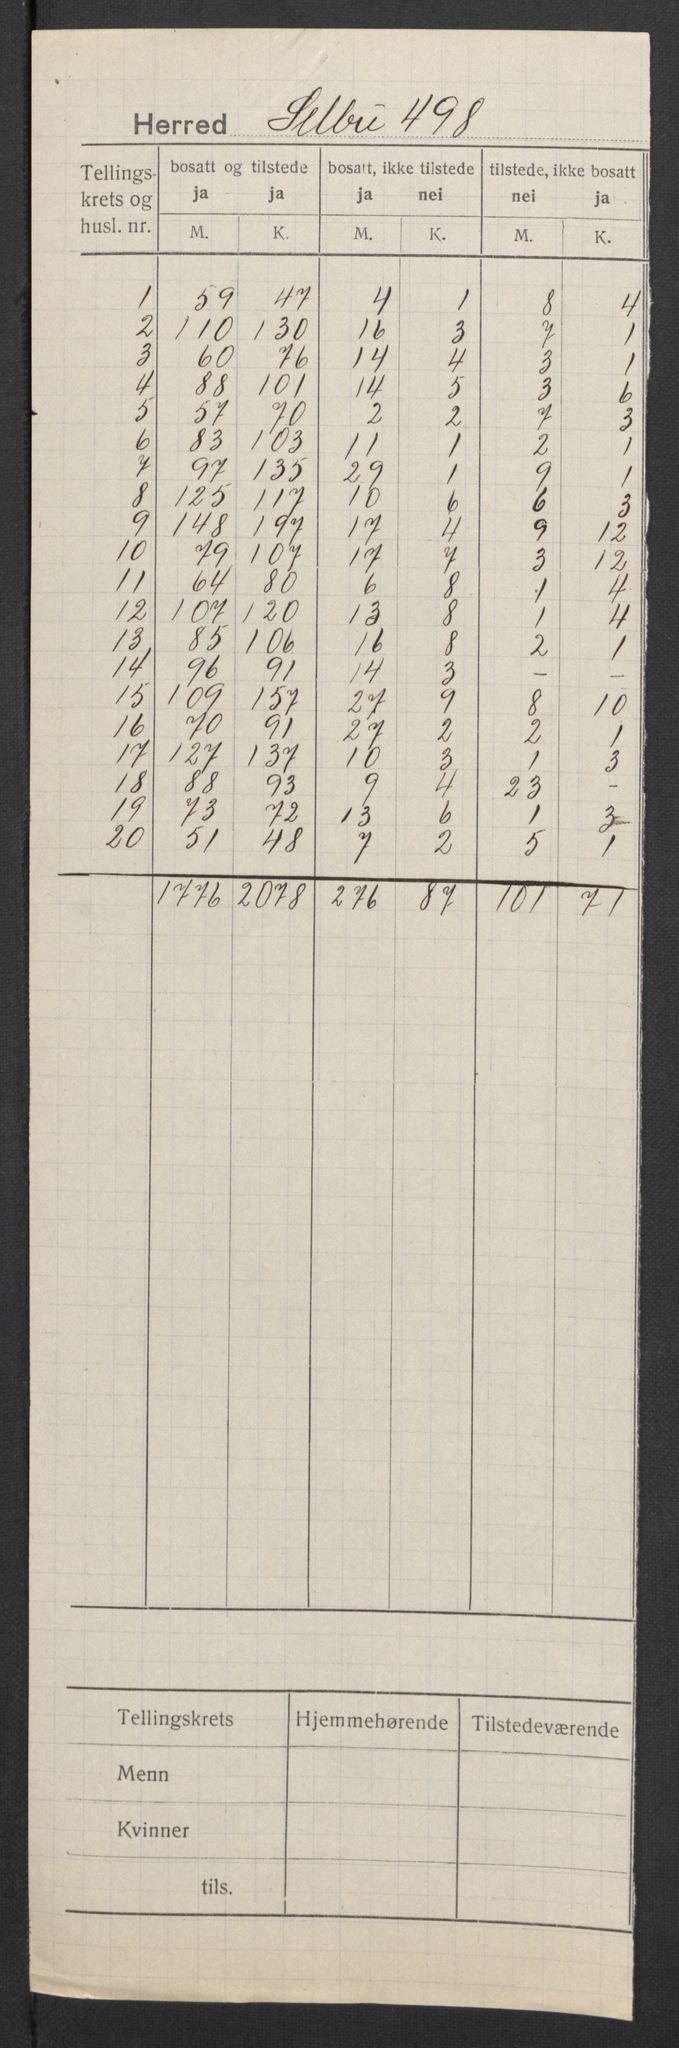 Herred Selbu 498
Tellings- bosatt og tilstede bosatt, ikke tilstede tilstede, ikke bosatt
krets og ja ja ja nei nei ja
husl. nr. M. K. M. K. M. K.
1 59 47 4 1 8 4
2 110 130 16 3 7 1
3 60 76 14 4 3 1
4 88 101 14 5 3 6
5 57 70 2 2 7 3
6 83 103 11 1 2 1
7 97 135 29 1 9 1
8 125 117 10 6 6 3
9 148 197 17 4 9 12
10 79 107 17 7 3 12
11 64 80 6 8 1 4
12 107 120 13 8 1 4
13 85 106 16 8 2 1
14 96 91 14 3 - -
15 109 157 27 9 8 10
16 70 91 27 2 2 1
17 127 137 10 3 1 3
18 88 93 9 4 23 -
19 73 72 13 6 1 3
20 51 48 7 2 5 1
1776 2078 276 87 101 71
Tellingskrets Hjemmehørende Tilstedeværende
Menn
Kvinner
tils.